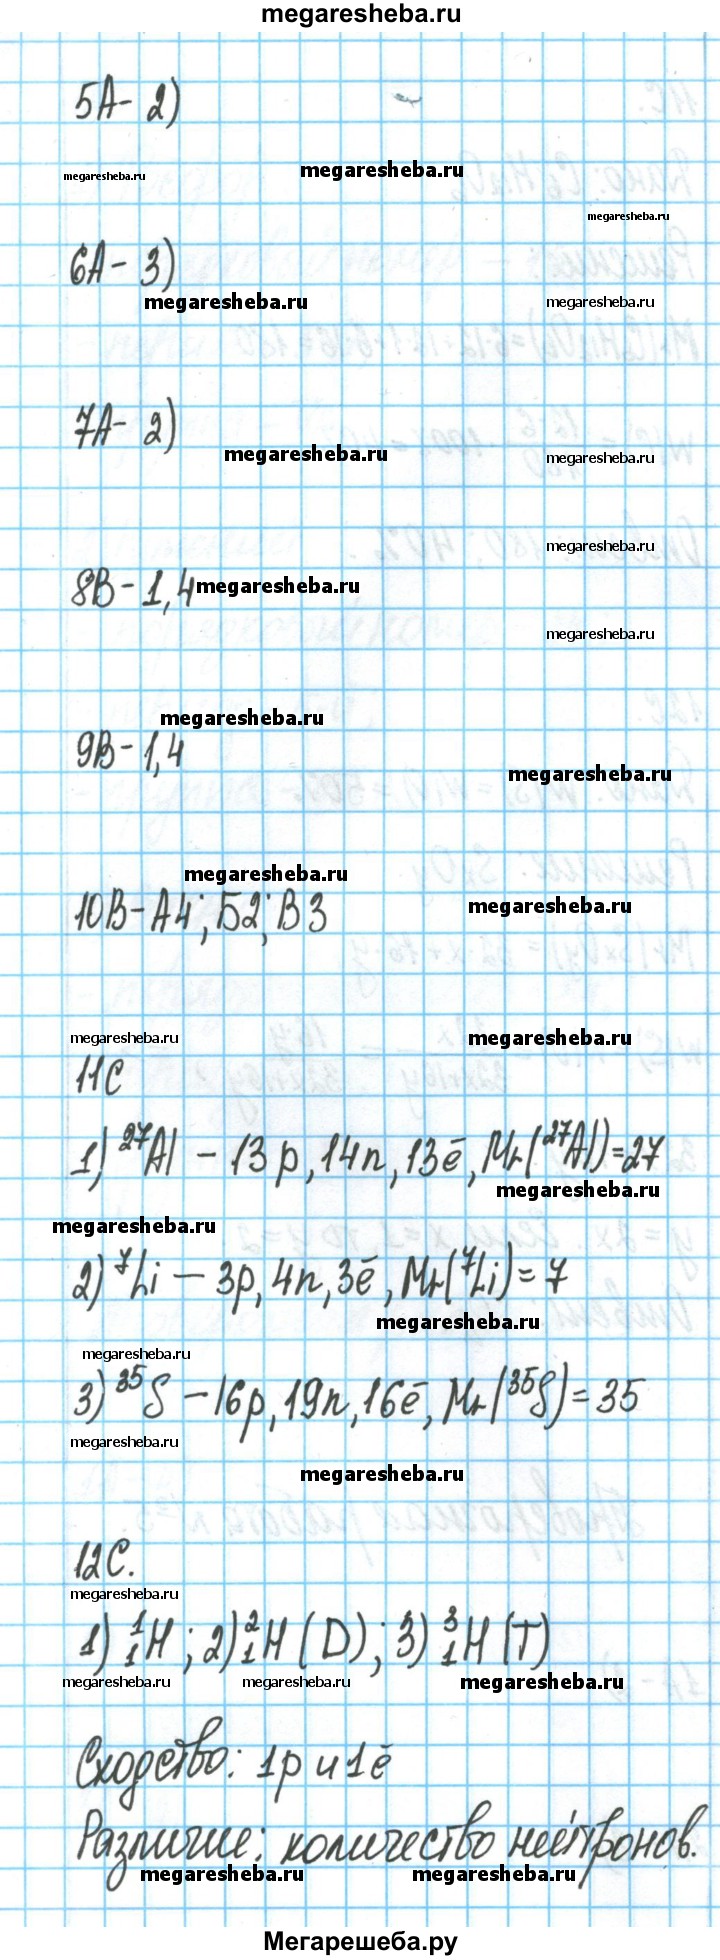 megaresheba.ru
5А - 2)
megaresheba.ru
megaresheba.ru
megaresheba.ru
6А - 3)
megaresheba.ru
megaresheba.ru
7А - 2)
megaresheba.ru
megaresheba.ru
megaresheba.ru
8В - 1,4
megaresheba.ru
megaresheba.ru
megaresheba.ru
9В - 1,4
megaresheba.ru
megaresheba.ru
10В - А4; Б2; В3
megaresheba.ru
megaresheba.ru
megaresheba.ru
11С
1) ²⁷Al - 13p, 14n, 13ē, Mr(²⁷Al)=27
megaresheba.ru
megaresheba.ru
2) ⁷Li - 3p, 4n, 3ē, Mr(⁷Li)=7
megaresheba.ru
megaresheba.ru
3) ³⁵S - 16p, 19n, 16ē, Mr(³⁵S)=35
megaresheba.ru
megaresheba.ru
12С.
megaresheba.ru
1) ¹₁H; 2) ²₁H (D); 3) ³₁H (T)
megaresheba.ru
megaresheba.ru
megaresheba.ru
Сходство: 1p и 1ē
Различие: количество нейтронов.
megaresheba.ru
megaresheba.ru
Мегарешеба.ру